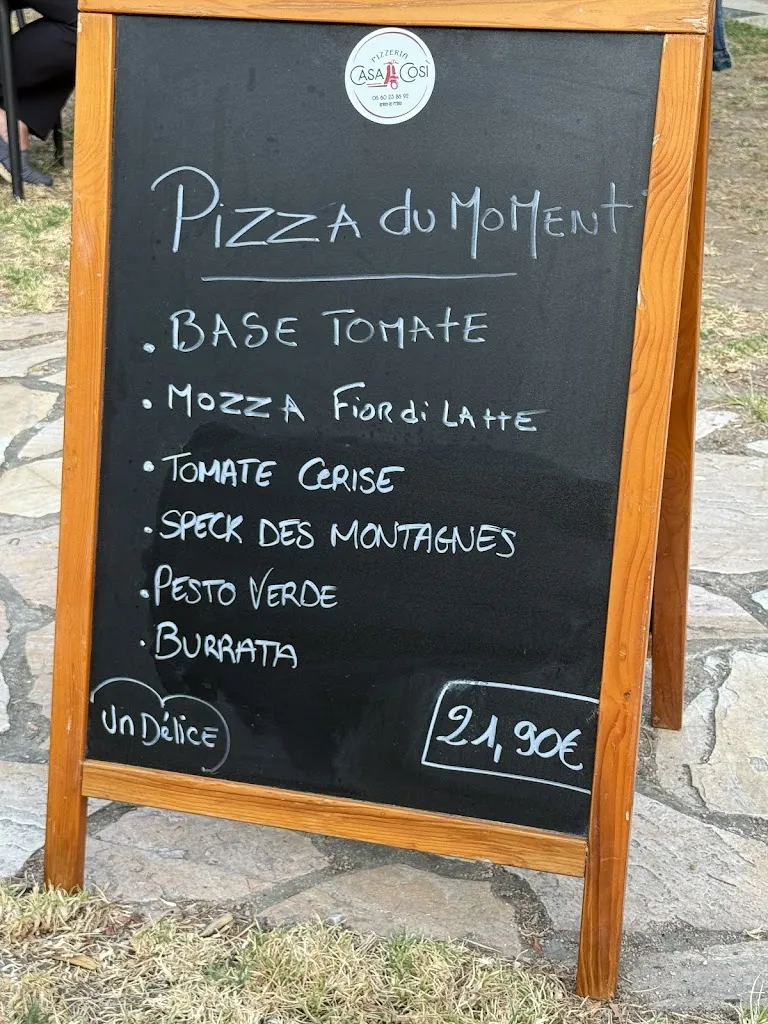 PIZZERIA
CASA COSÍ
PIZZA du MOMENt
. BASE TOMAtE
. MOZZA FIORdi LAttE
. TOMATE CERISE
. SPECK DES MONTAGNES
. PESTO VERDE
. BURRATA
Un Délice
21,90€